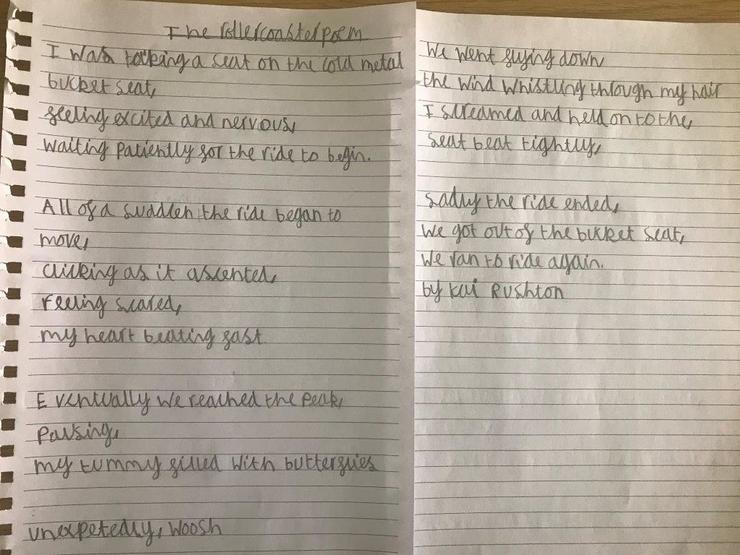 The rollercoaster poem
I was taking a seat on the cold metal
bucket seat,
feeling excited and nervous,
waiting patiently for the ride to begin.
All of a sudden the ride began to
move,
clicking as it ascented,
Feeling scared,
my heart beating fast
Eventually we reached the peak,
Pausing,
my tummy filled with butterflies
unexpetedly, Woosh
We went flying down
the wind whistling through my hair
I screamed and held on to the,
seat beat tightly,
sadly the ride ended,
We got out of the bucket seat,
We ran to ride again.
by Kai Rushton